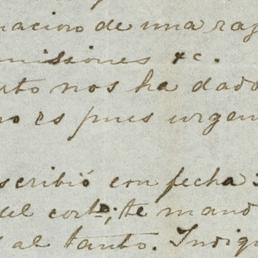 nacion de una raz
misiones &c.
nto nos ha dado
no es pues urgen
scribió con fecha
del corte; te mand
al tanto. Indiq